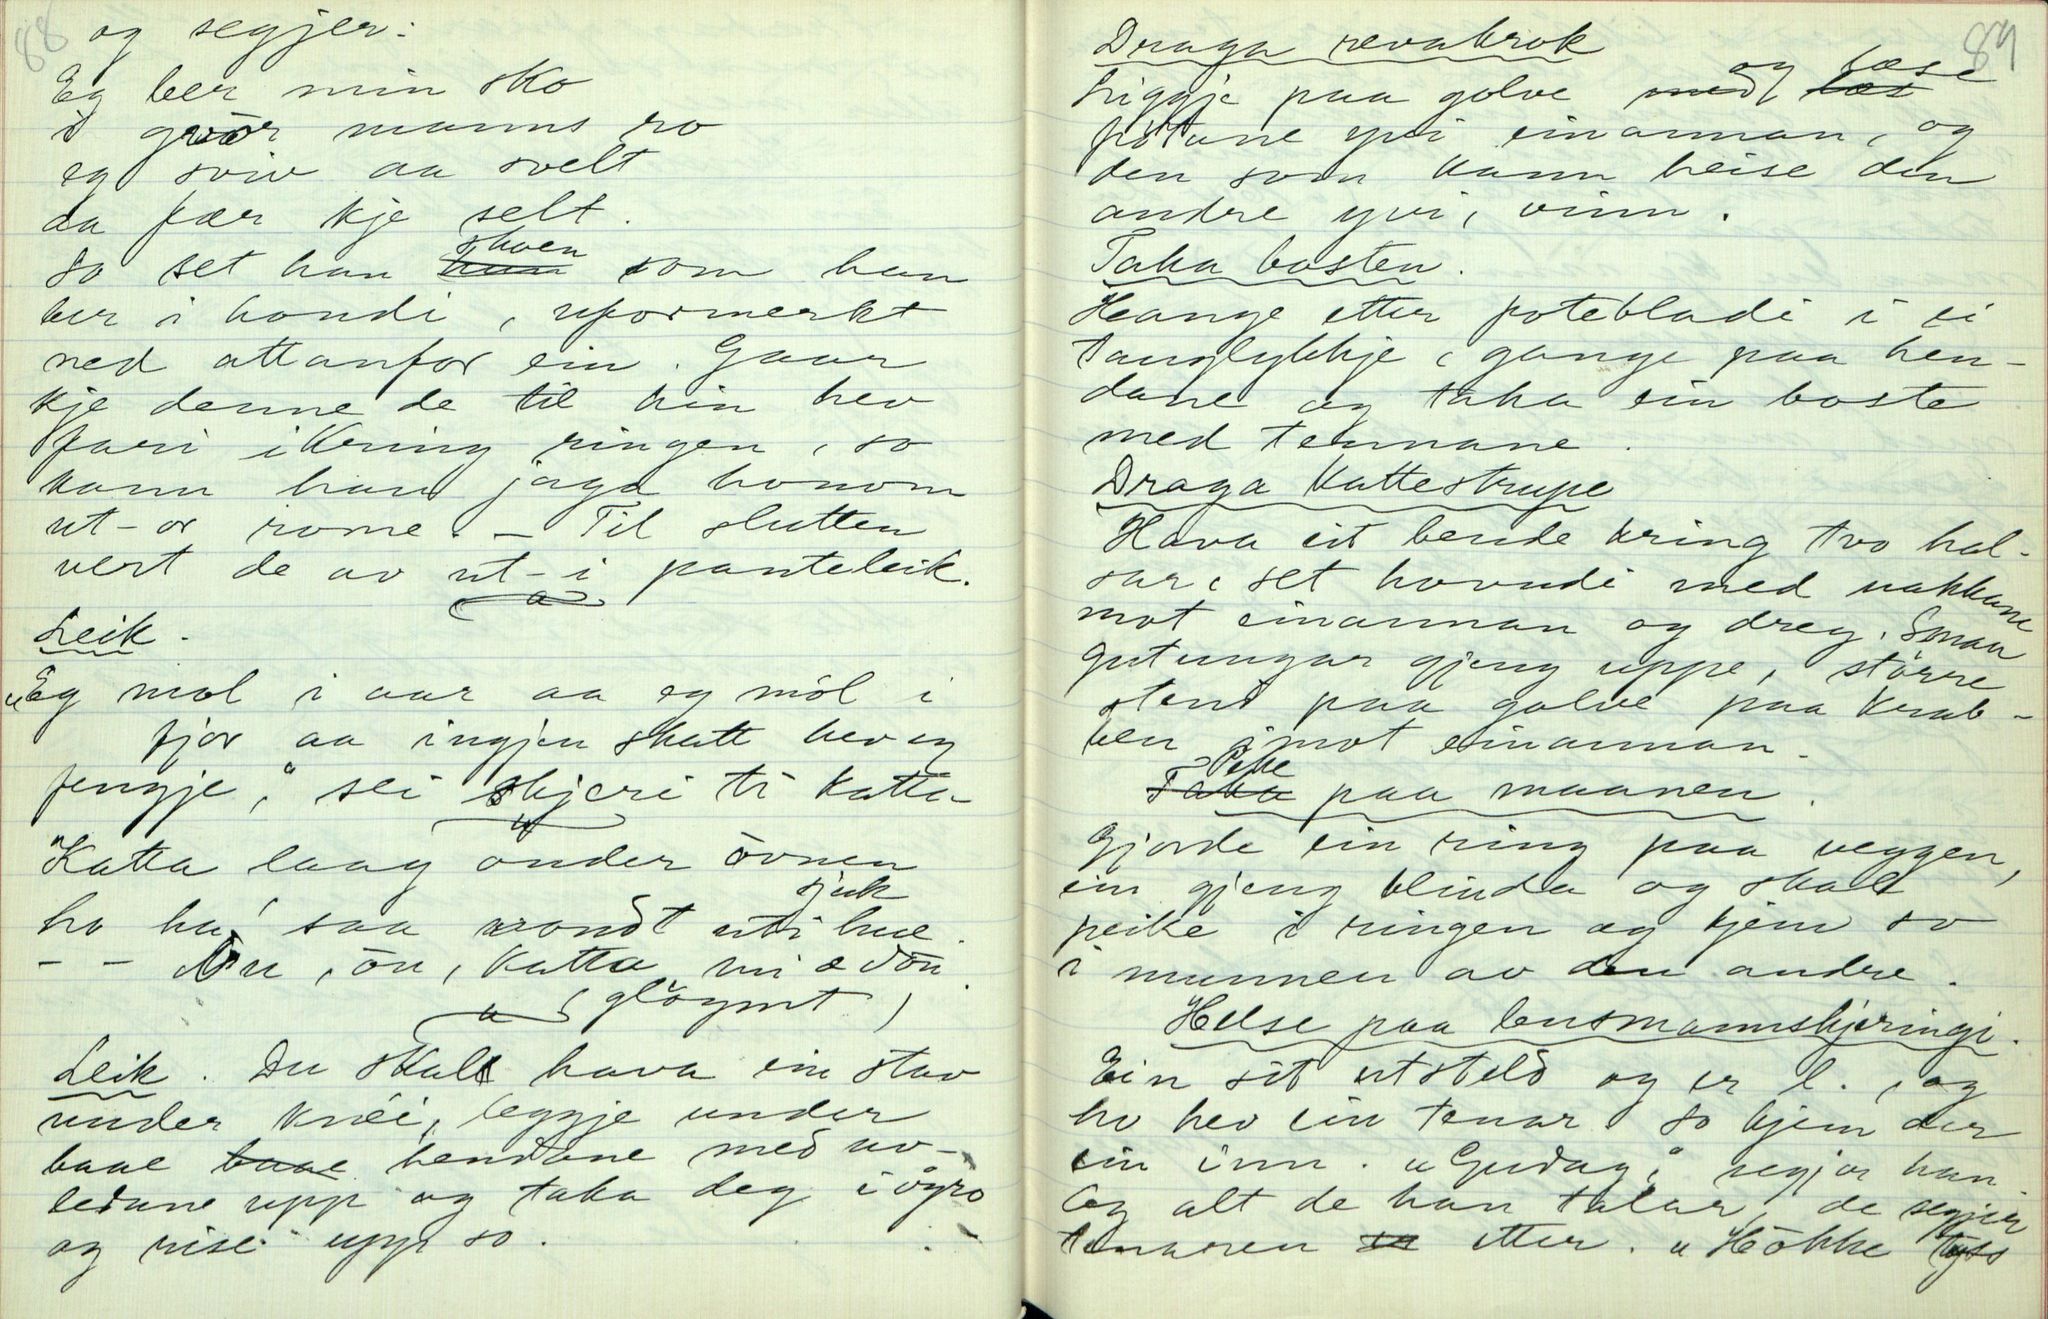 88
og segjer:
Eg ber min sko
i gvør manns ro
eg sviv aa svelt
da fær kje selt.
So set han skoen som han
ber i hondi, uformerkt
ned attanfor ein. Gaar
kje denne de til hin hev
fari ikring ringen, so
kann han jaga honom
ut-or rome. – Til slutten
vert de av ut-i panteleik.
Leik.
"Eg mol i aar aa eg mol i
fjor aa ingjen skatt hev eg
fengje," sei skjeri ti katta
"Katta laag onder ovnen
ho ha' saa vondt uti hue. sjuk
– – Øn, ön, katta mi æ dön
(glöymt)
Leik. Du skal hava ein stav
under knéi, leggje under
baae baae hendane med ov-
ledane upp og taka deg i öyro
og rise upp so.
89
Draga revakrok
Liggje paa golve med og læse
fötane yvi einannan, og
den som kann heise den
andre yvi, vinn.
Taka bosten.
Hange etter potebladi i ei
tauglykkje, gange paa hen-
dane og taka ein boste
med tennane.
Draga Kattestrupe
Hava eit bende kring tvo hal-
sar, set hovudi med nakkane
mot einannan og dreg. Smaa
gutungar gjeng uppe, större
stend paa golve paa krab-
ben imot einannan.
Taka Peike paa maanen.
Gjorde ein ring paa veggen,
ein gjeng blinda og skal
peike i ringen og kjem so
i munnen av den andre.
Helse paa lensmannskjeringi.
Ein sit utsteld og er l., og
ho hev ein tenar. So kjem der
ein inn. "Gudag," segjer han.
Og alt de han talar, de segjer
tenaren etter. "Hökke